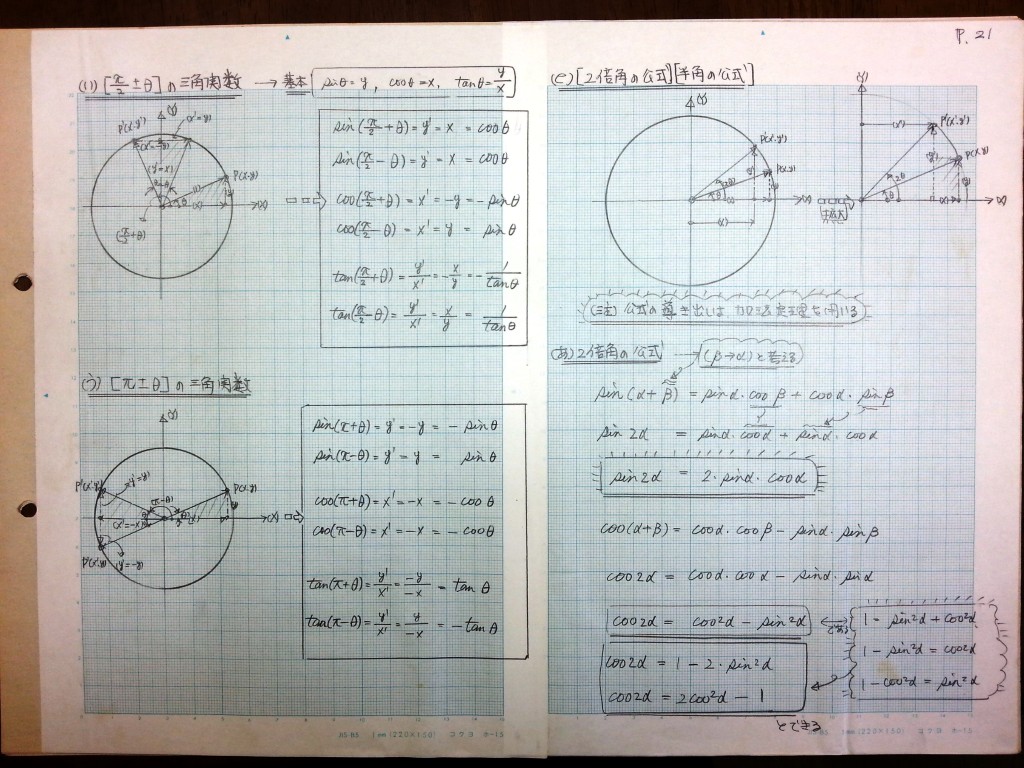 P. 21
(い) [π/2 ± θ] の三角関数 → 基本 (sinθ = y, cosθ = x, tanθ = y/x)
(Y)
P'(x'・y')
(x'=y)
(x'=-y)
(y'=x)
P(x・y)
(x)
θ
(X)
(π/2+θ)
sin(π/2 + θ) = y' = x = cosθ
sin(π/2 - θ) = y' = x = cosθ
cos(π/2 + θ) = x' = -y = - sinθ
cos(π/2 - θ) = x' = y = sinθ
tan(π/2 + θ) = y'/x' = - x/y = - 1/tanθ
tan(π/2 - θ) = y'/x' = x/y = 1/tanθ
(う) [π ± θ] の三角関数
(Y)
P'(x'・y')
(y'=y)
(π-θ)
P(x・y)
(x'=-x)
θ
(x)
(X)
P'(x'・y')
(y'=-y)
sin(π+θ) = y' = -y = - sinθ
sin(π-θ) = y' = y = sinθ
cos(π+θ) = x' = -x = - cosθ
cos(π-θ) = x' = -x = - cosθ
tan(π+θ) = y'/x' = -y/-x = tanθ
tan(π-θ) = y'/x' = y/-x = - tanθ
JIS B5 1mm (220×150) コクヨ ホ-15
(と) [2倍角の公式] [半角の公式]
(Y)
P'(x'・y')
P(x・y)
2θ
θ
(x)
(x')
(X)
拡大
(Y)
(x')
P'(x'・y')
(y')
P(x・y)
2θ
θ
(x)
(X)
(注) 公式の導き出しは、加法定理を用いる
(あ) 2倍角の公式 → (β→α) と考える
sin(α+β) = sinα・cosβ + cosα・sinβ
sin2α = sinα・cosα + sinα・cosα
sin2α = 2・sinα・cosα
cos(α+β) = cosα・cosβ - sinα・sinβ
cos2α = cosα・cosα - sinα・sinα
cos2α = cos²α - sin²α
である
1 = sin²α + cos²α
1 - sin²α = cos²α
1 - cos²α = sin²α
cos2α = 1 - 2・sin²α
cos2α = 2cos²α - 1
とできる
JIS B5 1mm (220×150) コクヨ ホ-15